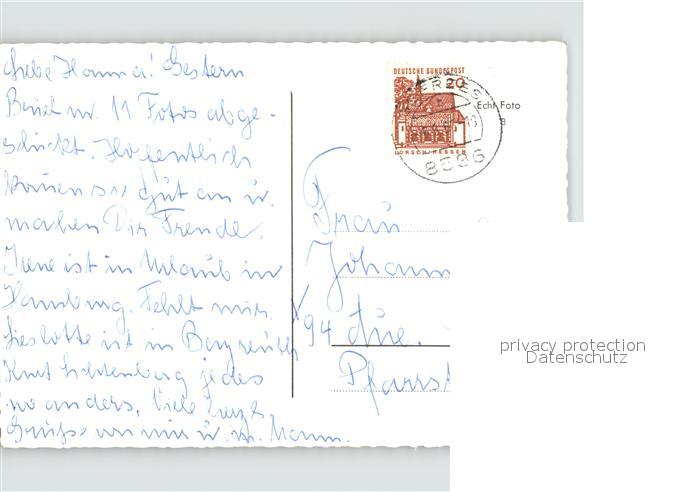 Liebe Hanna! Gestern
Brief m. 11 Fotos abge-
schickt. Hoffentlich
kommen sie gut an u.
machen Dir Freude.
Irene ist in Urlaub in
Hamburg. Fehlt mir.
Lieselotte ist in Bayreuth
Knut jedes
wo anders. Viele herzl.
Grüße von mir u. m. Mann.
DEUTSCHE BUNDESPOST
20
LORSCH/HESSEN
8586
Echt Foto
Frau
Johann
94 Aue.
Pfarrst
privacy protection
Datenschutz